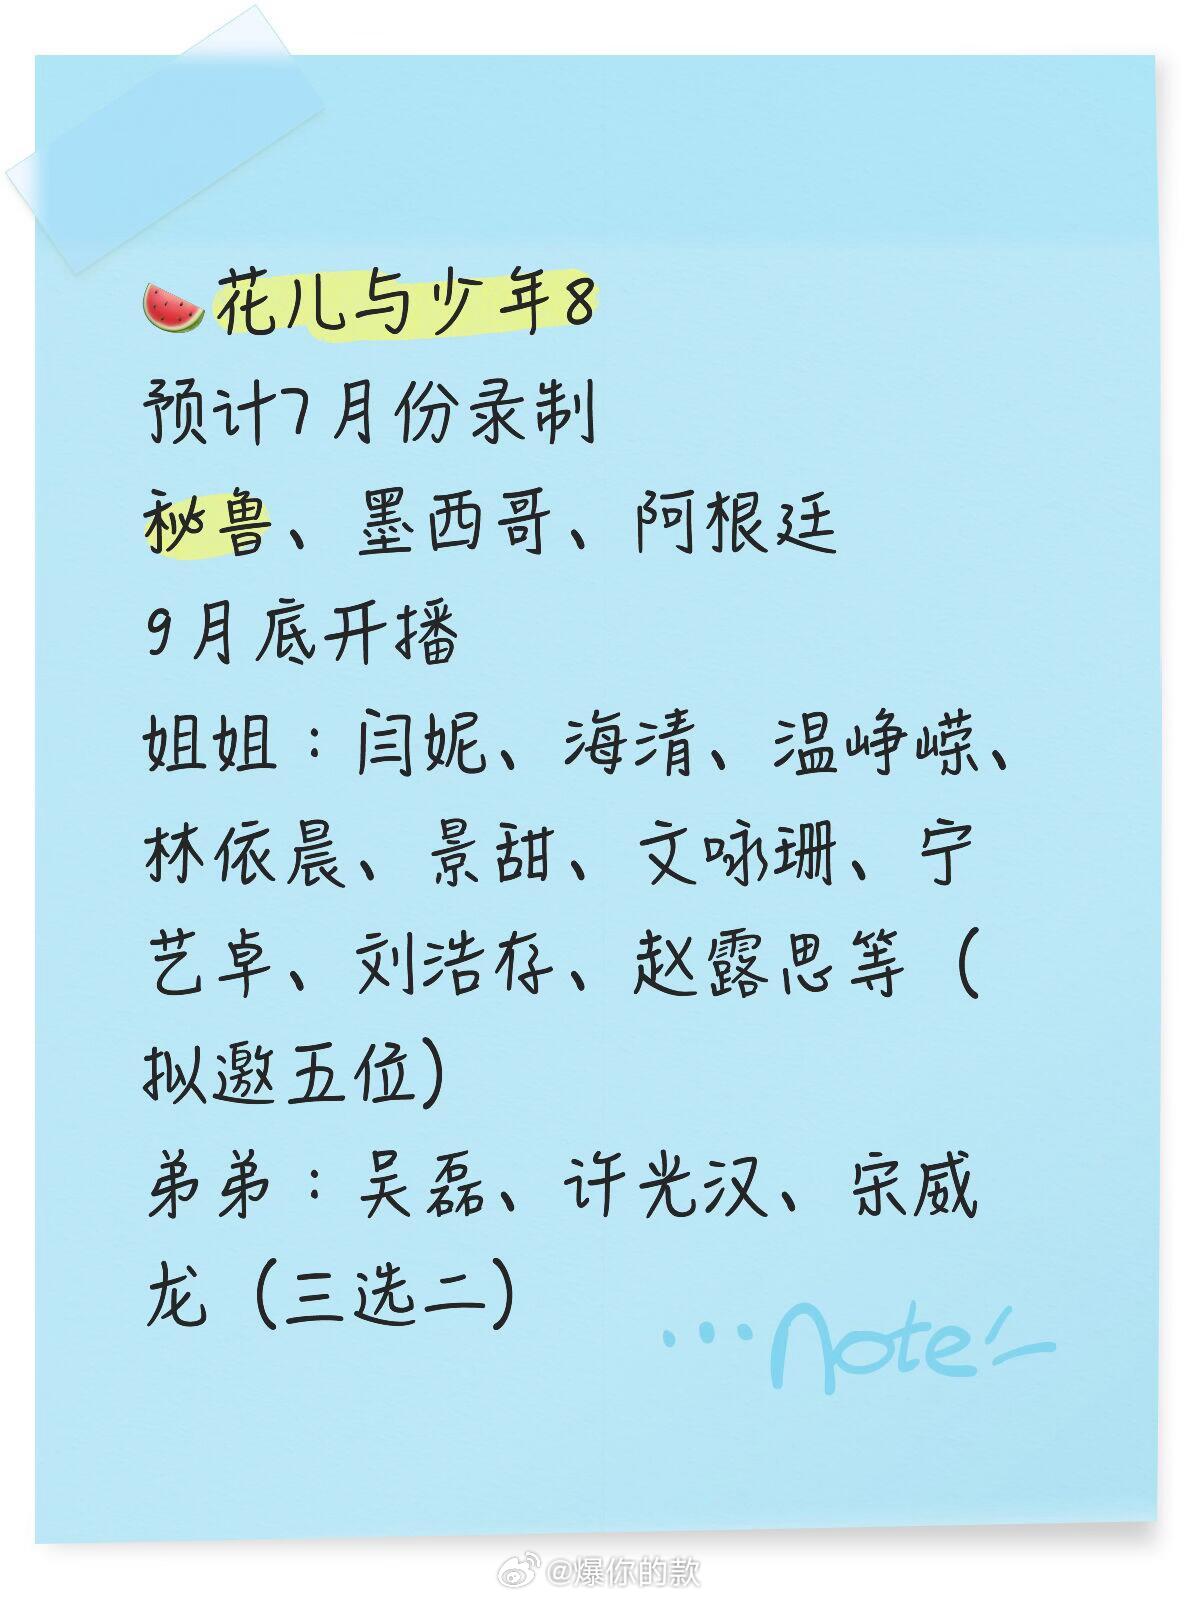 🍉花儿与少年8
预计7月份录制
秘鲁、墨西哥、阿根廷
9月底开播
姐姐：闫妮、海清、温峥嵘、
林依晨、景甜、文咏珊、宁
艺卓、刘浩存、赵露思等（
拟邀五位）
弟弟：吴磊、许光汉、宋威
龙（三选二）
...note
@爆你的款